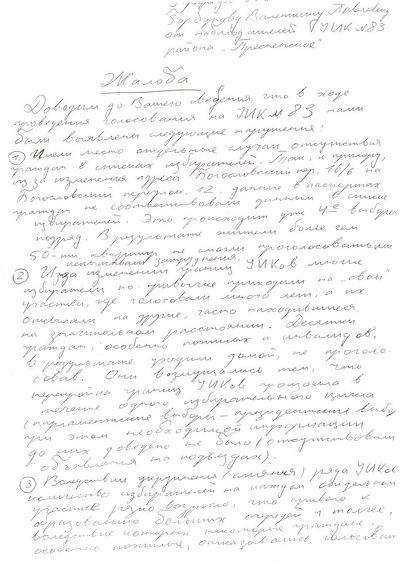 Барбухову Валентину Павловичу
от наблюдателей УИК №83
района "Пресненское"
Жалоба
Доводим до Вашего сведения, что в ходе
проведения голосования на УИК №83 нами
были выявлены следующие нарушения:
① Имели место отдельные случаи отсутствия
граждан в списках избирателей. Так, к примеру,
из-за изменения адреса Богословский пер. 16/6 на
Богословский переулок 12, данные в паспортах
граждан не соответствовали данным в списке
избирателей. Это происходит уже 4е выборы
подряд. В результате жители более чем
50-ти квартир не смогли проголосовать или
испытывали затруднения.
② Из-за изменения границ УИКов многие
избиратели по привычке приходили на "свои"
участки, где голосовали много лет, а их
отсылали на другие, часто находившиеся
на значительном расстоянии. Десятки
граждан, особенно пожилых и инвалидов,
в результате уходили домой, не проголо
совав. Они возмущались тем, что
перекройка границ УИКов прошла в
течение одного избирательного цикла
(парламентские выборы - президентские выбо
при этом необходимой информации
до них доведено не было (отсутствовали
объявления на подъездах).
③ Вследствие укрупнения (слияния) ряда УИКов
количество избирателей на каждом отдельном
участке резко возросло, что привело к
образованию больших очередей и толчее,
вследствие которых некоторые граждане,
особенно пожилые, отказывались голосовать